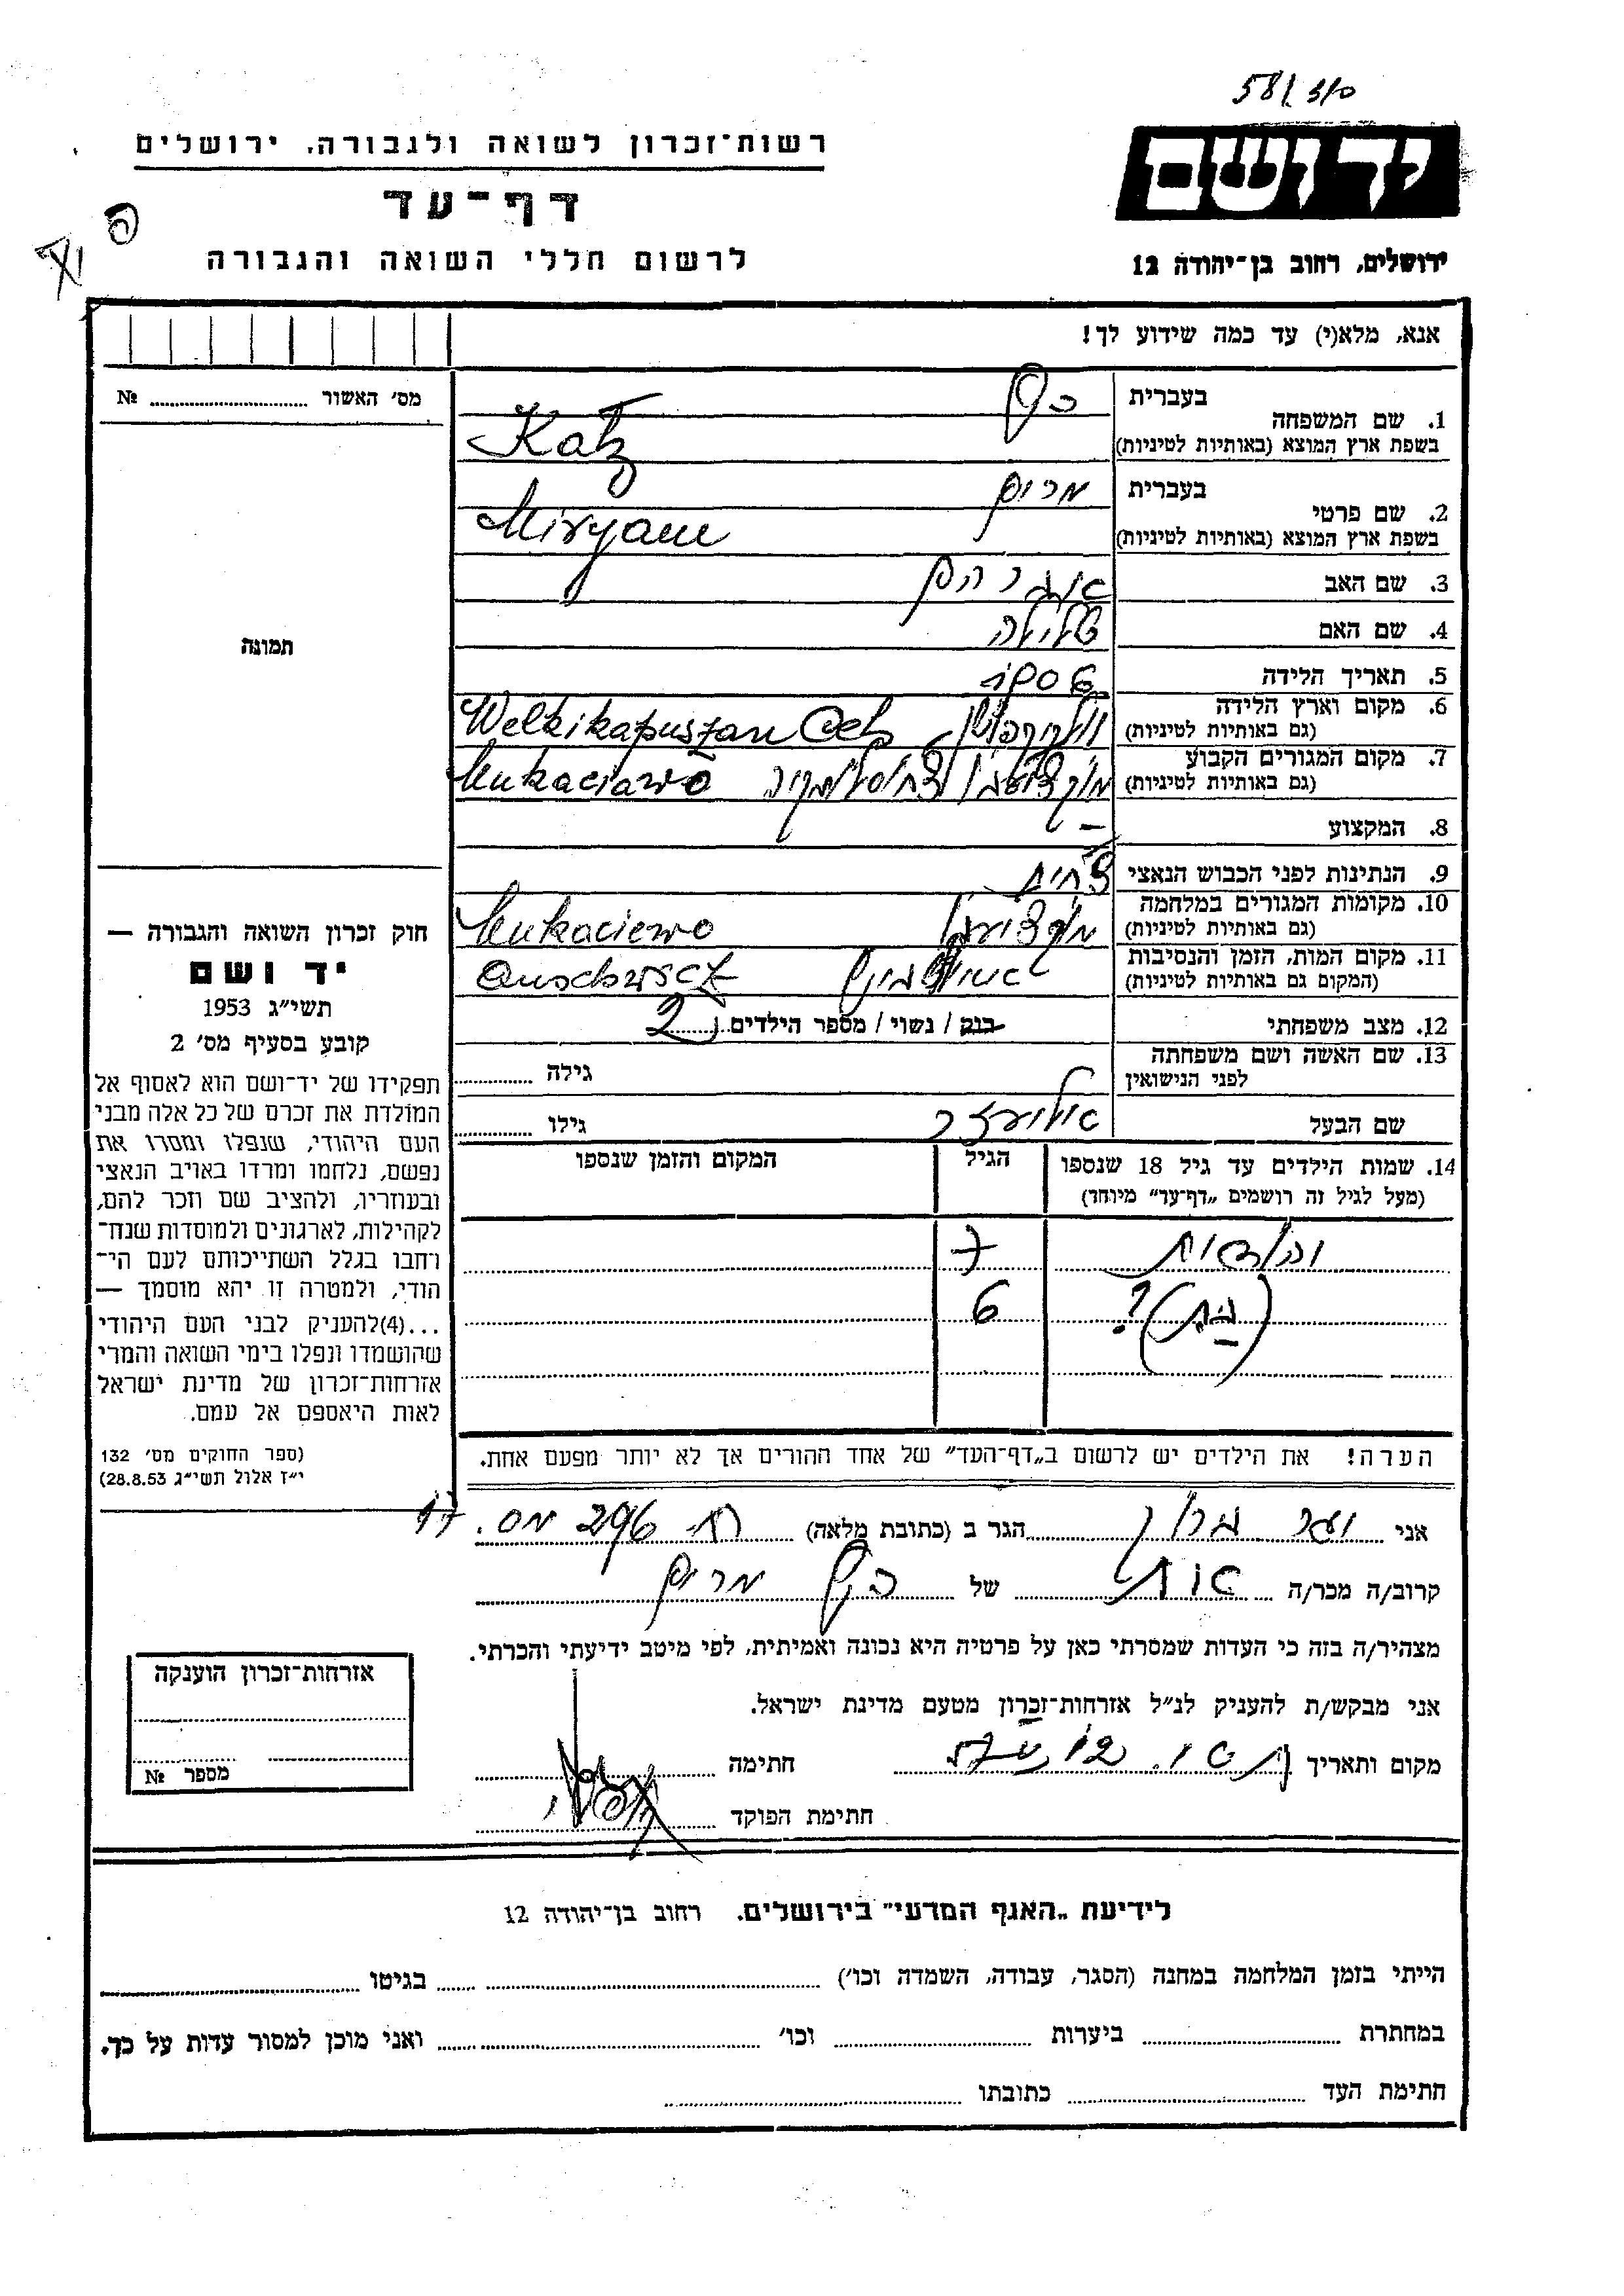 58/310
רשות־זכרון לשואה ולגבורה. ירושלים
יד ושם
דף־עד
לרשום חללי השואה והגבורה
ירושלים, רחוב בן־יהודה 12
אנא, מלא(י) עד כמה שידוע לך!
מס׳ האשור № 
1. שם המשפחה
בעברית כץ
בשפת ארץ המוצא (באותיות לטיניות) Katz
2. שם פרטי
בעברית מרים
בשפת ארץ המוצא (באותיות לטיניות) Miryam
3. שם האב אברהם
4. שם האם
5. תאריך הלידה
6. מקום וארץ הלידה
(גם באותיות לטיניות) Welkikapuszan
7. מקום המגורים הקבוע
(גם באותיות לטיניות) Mukaciewo
8. המקצוע –
9. הנתינות לפני הכבוש הנאצי
10. מקומות המגורים במלחמה
(גם באותיות לטיניות) Mukaciewo
11. מקום המות, הזמן והנסיבות
(המקום גם באותיות לטיניות) אושוויץ
12. מצב משפחתי רווק / נשוי / מספר הילדים 2
13. שם האשה ושם משפחתה
לפני הנישואין
גילה
שם הבעל אליעזר
גילו
14. שמות הילדים עד גיל 18 שנספו
(מעל לגיל זה רושמים „דף־עד״ מיוחד)
הגיל
המקום והזמן שנספו
7
(בת)? 6
הערה! את הילדים יש לרשום ב„דף־העד״ של אחד ההורים אך לא יותר מפעם אחת.
תמונה
חוק זכרון השואה והגבורה —
יד ושם
תשי״ג 1953
קובע בסעיף מס׳ 2
תפקידו של יד־ושם הוא לאסוף אל
המולדת את זכרם של כל אלה מבני
העם היהודי, שנפלו ומסרו את
נפשם, נלחמו ומרדו באויב הנאצי
ובעוזריו, ולהציב שם וזכר להם,
לקהילות, לארגונים ולמוסדות שנח־
רחבו בגלל השתייכותם לעם הי־
הודי, ולמטרה זו יהא מוסמך —
...(4)להעניק לבני העם היהודי
שהושמדו ונפלו בימי השואה והמרי
אזרחות־זכרון של מדינת ישראל
לאות היאספם אל עמם.
(ספר החוקים מס׳ 132
י״ז אלול תשי״ג 28.8.53)
אני הגר ב (כתובת מלאה) 296
קרוב/ה מכר/ה אחות של כץ מרים
מצהיר/ה בזה כי העדות שמסרתי כאן על פרטיה היא נכונה ואמיתית, לפי מיטב ידיעתי והכרתי.
אני מבקש/ת להעניק לנ״ל אזרחות־זכרון מטעם מדינת ישראל.
מקום ותאריך חתימה
חתימת הפוקד
אזרחות־זכרון הוענקה
מספר №
לידיעת „האגף המדעי״ בירושלים. רחוב בן־יהודה 12
הייתי בזמן המלחמה במחנה (הסגר, עבודה, השמדה וכו׳) בגיטו
במחתרת ביערות וכו׳ ואני מוכן למסור עדות על כך.
חתימת העד כתובתו